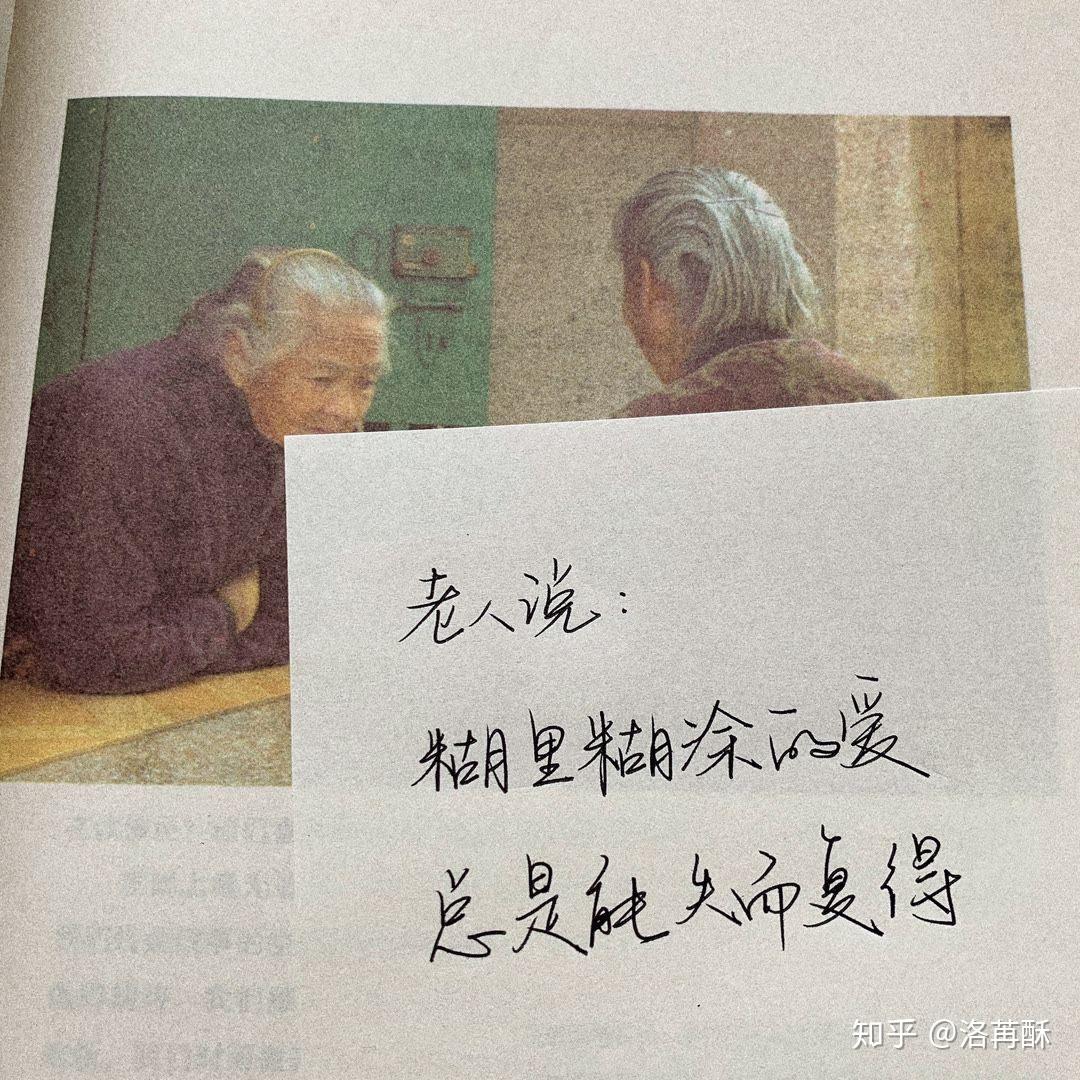 老人说：
糊里糊涂的爱
总是能失而复得
知乎 @洛苒酥